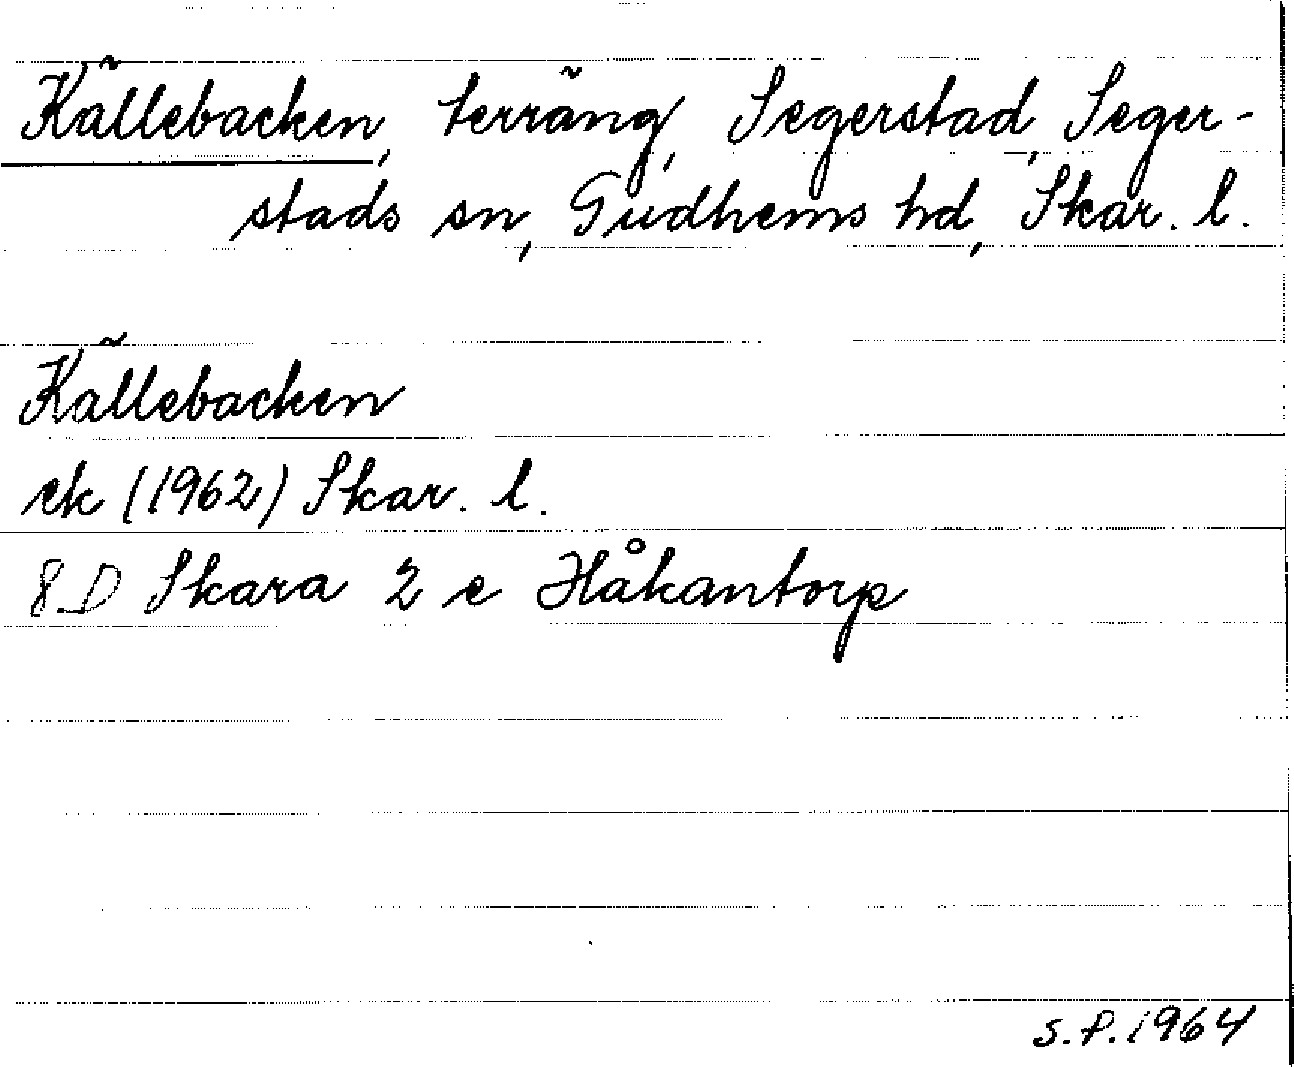 Källebacken, terräng, Segerstad, Seger-
stads sn, Gudhems hd, Skar. l.
Källebacken
ek (1962) Skar. l.
8 D Skara 2 e Håkantorp
S.P. 1964